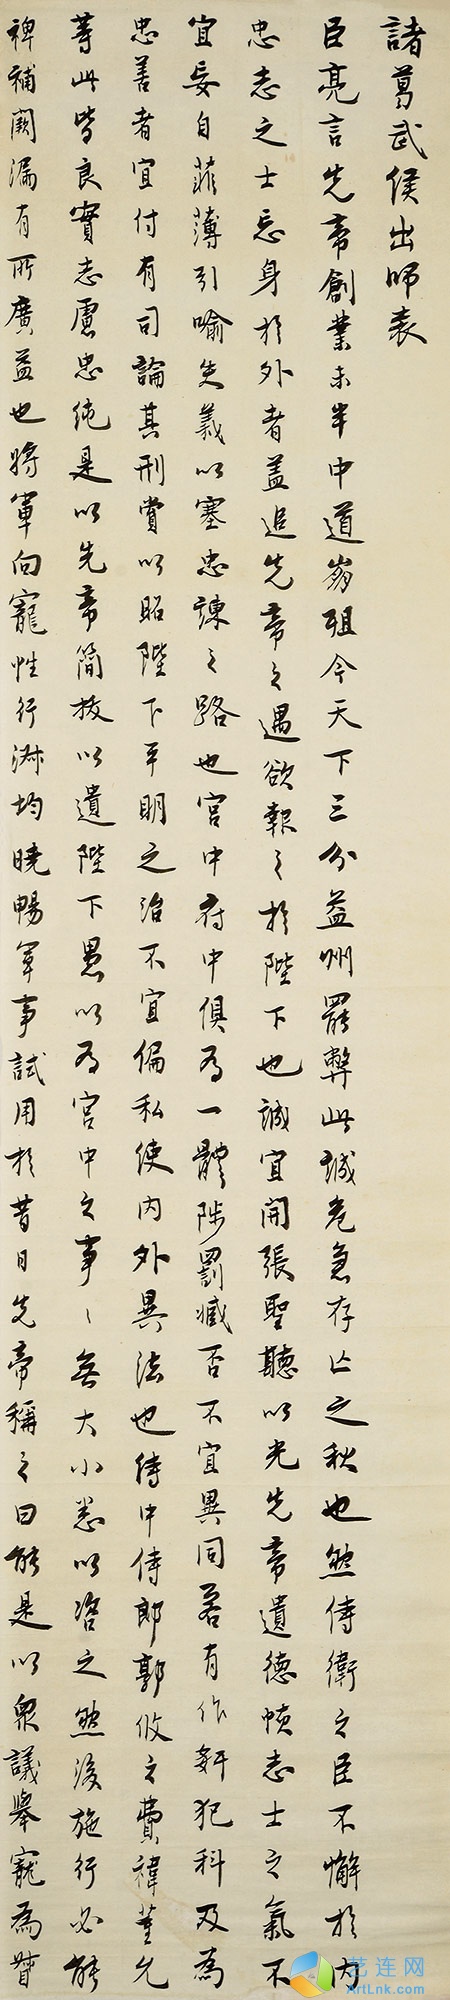 諸葛武侯出師表
臣亮言先帝創業未半中道崩殂今天下三分益州罷弊此誠危急存亡之秋也然侍衛之臣不懈於內
忠志之士忘身於外者蓋追先帝之遇欲報之於陛下也誠宜開張聖聽以光先帝遺德恢志士之氣不
宜妄自菲薄引喻失義以塞忠諫之路也宮中府中俱為一體陟罰臧否不宜異同若有作奸犯科及為
忠善者宜付有司論其刑賞以昭陛下平明之治不宜偏私使內外異法也侍中侍郎郭攸之費禕董允
等此皆良實志慮忠純是以先帝簡拔以遺陛下愚以為宮中之事〻無大小悉以咨之然後施行必能
裨補闕漏有所廣益也將軍向寵性行淑均曉暢軍事試用於昔日先帝稱之曰能是以眾議舉寵為督
艺连网
ArtLnk.com